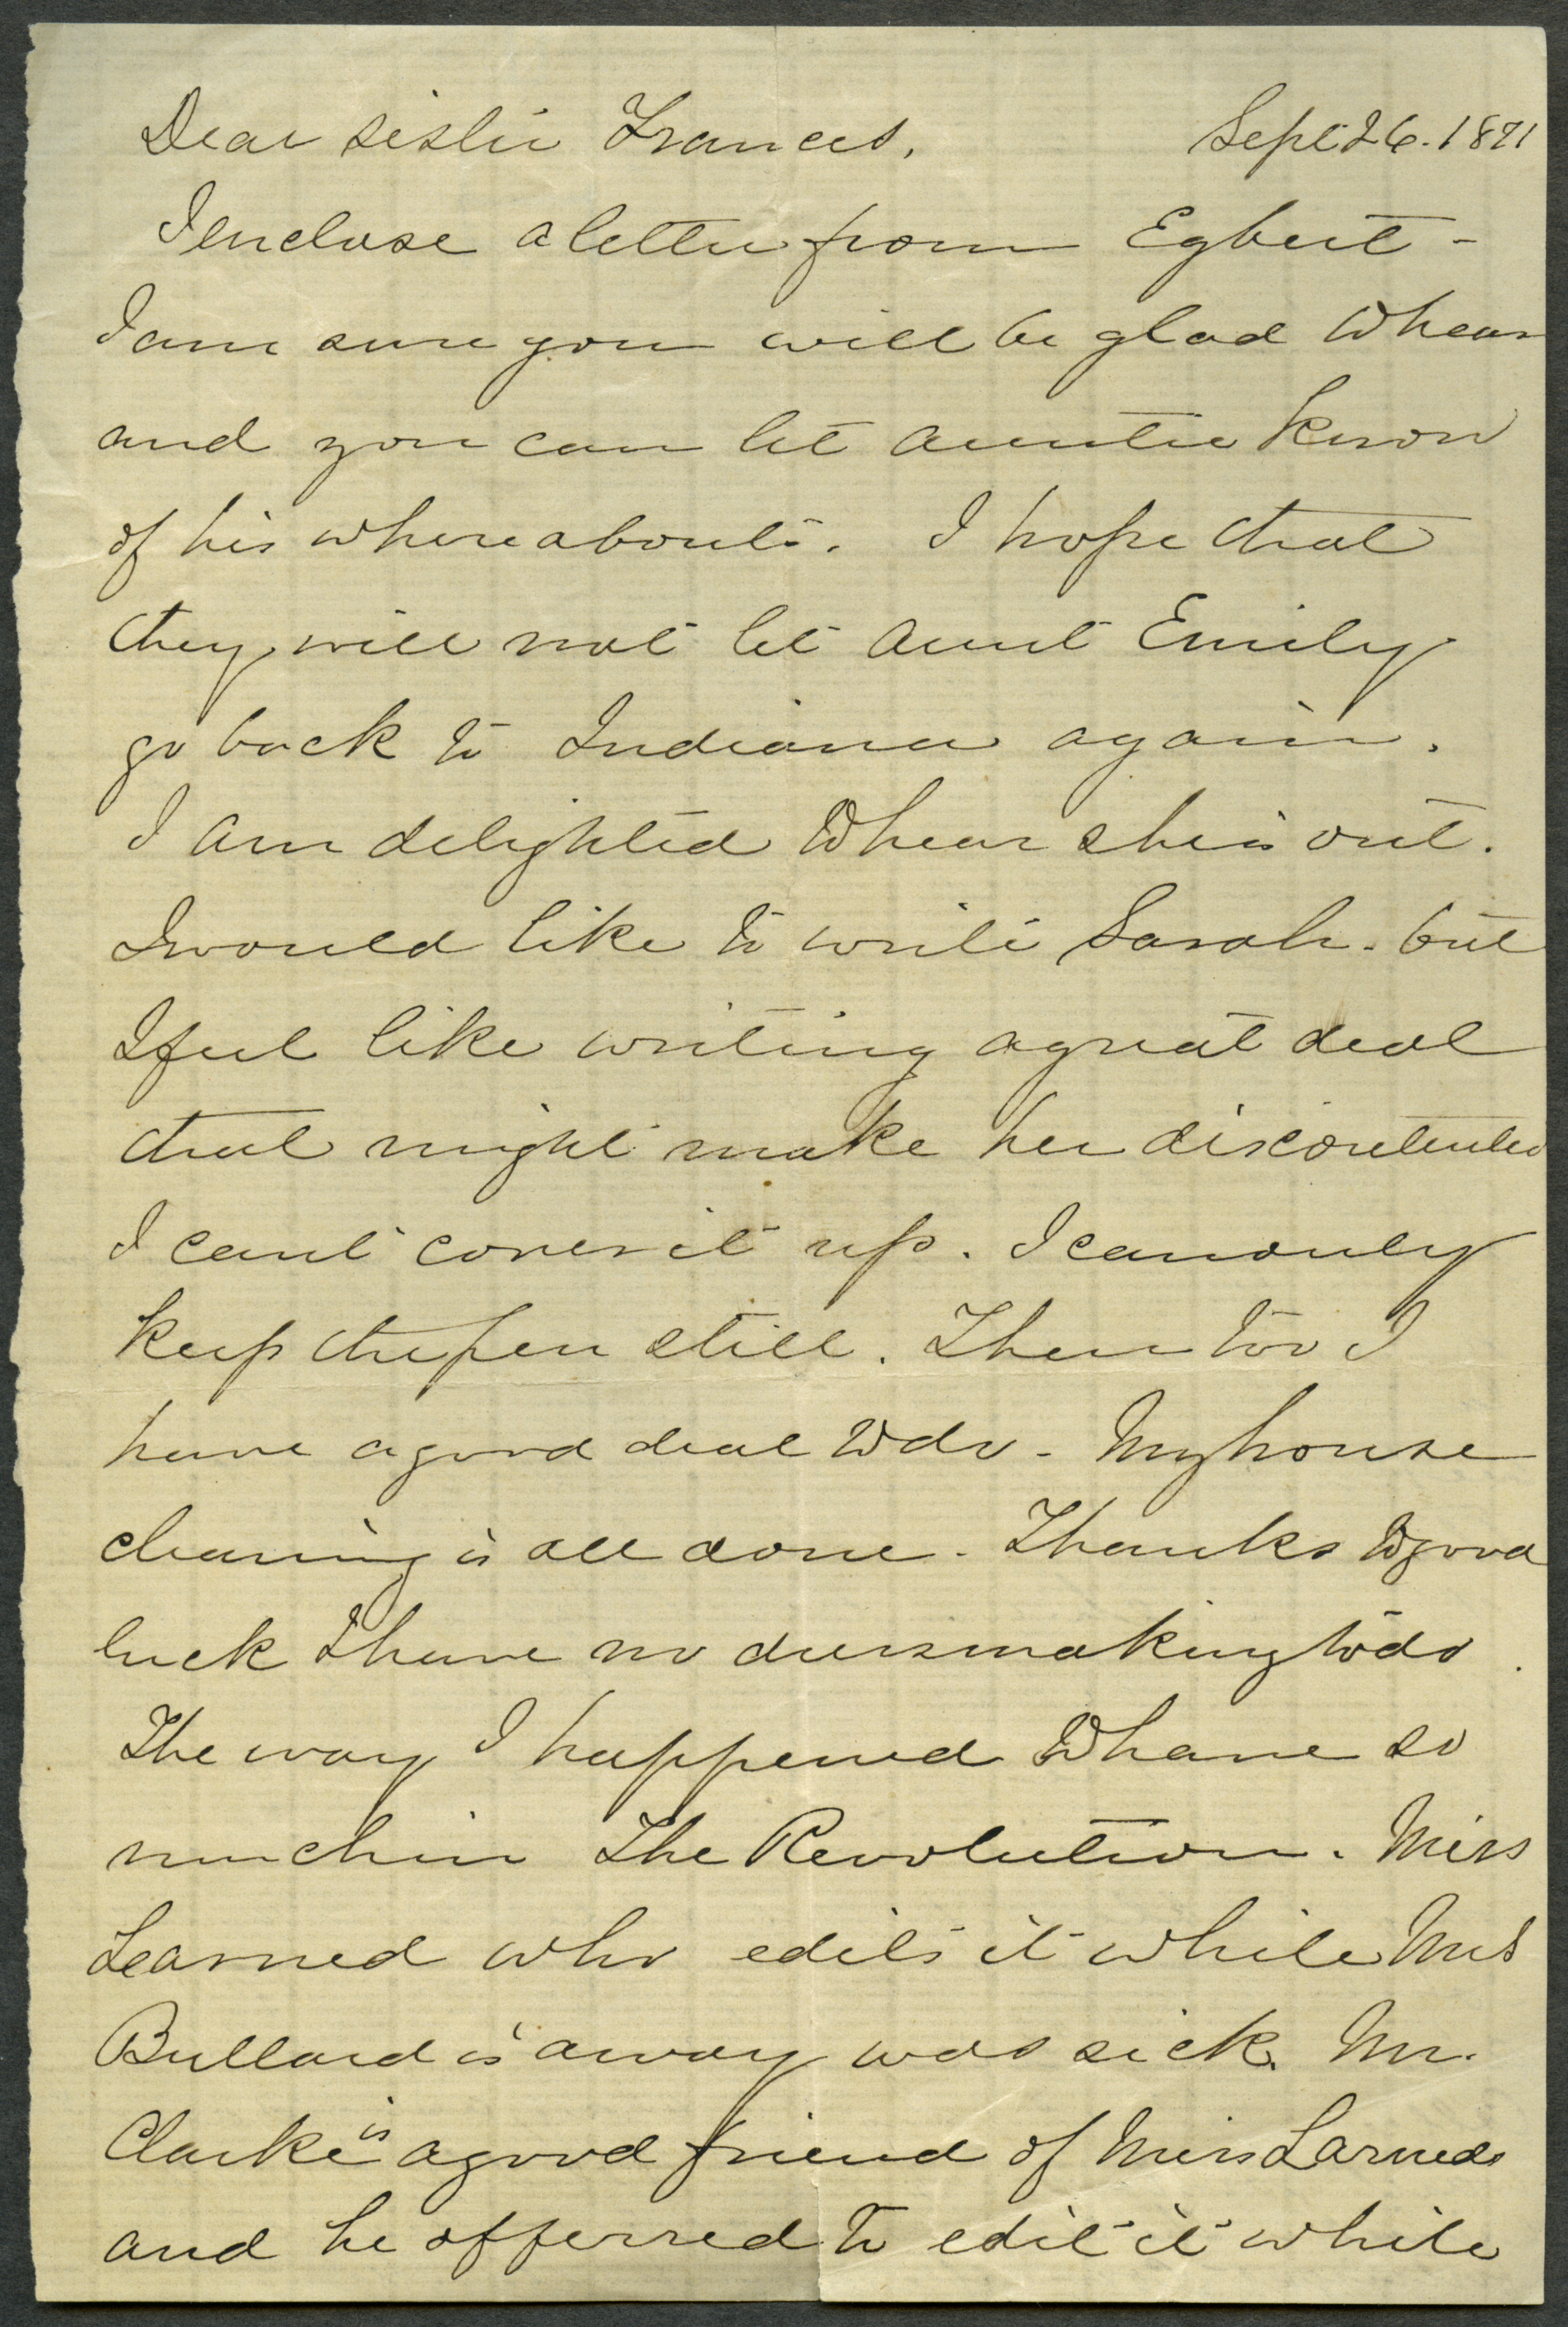 Dear sister Frances, Sept 26. 1871
I enclose a letter from Egbert -
I am sure you will be glad to hear
and you can let auntie know
of his whereabouts. I hope that
they will not let Aunt Emily
go back to Indiana again.
I am delighted to hear she is out.
I would like to write Sarah. but
I feel like writing a great deal
that might make her discontented
I cant cover it up. I can only
keep the pen still. Then too I
have a good deal to do - My house
cleaning is all done. Thanks to good
luck I have no dressmaking to do.
The way I happened to have so
much in The Revolution. Miss
Learned who edits it while Mrs
Bullard is away was sick. Mr.
Clarke is a good friend of Miss Larneds
and he offerred to edit it while